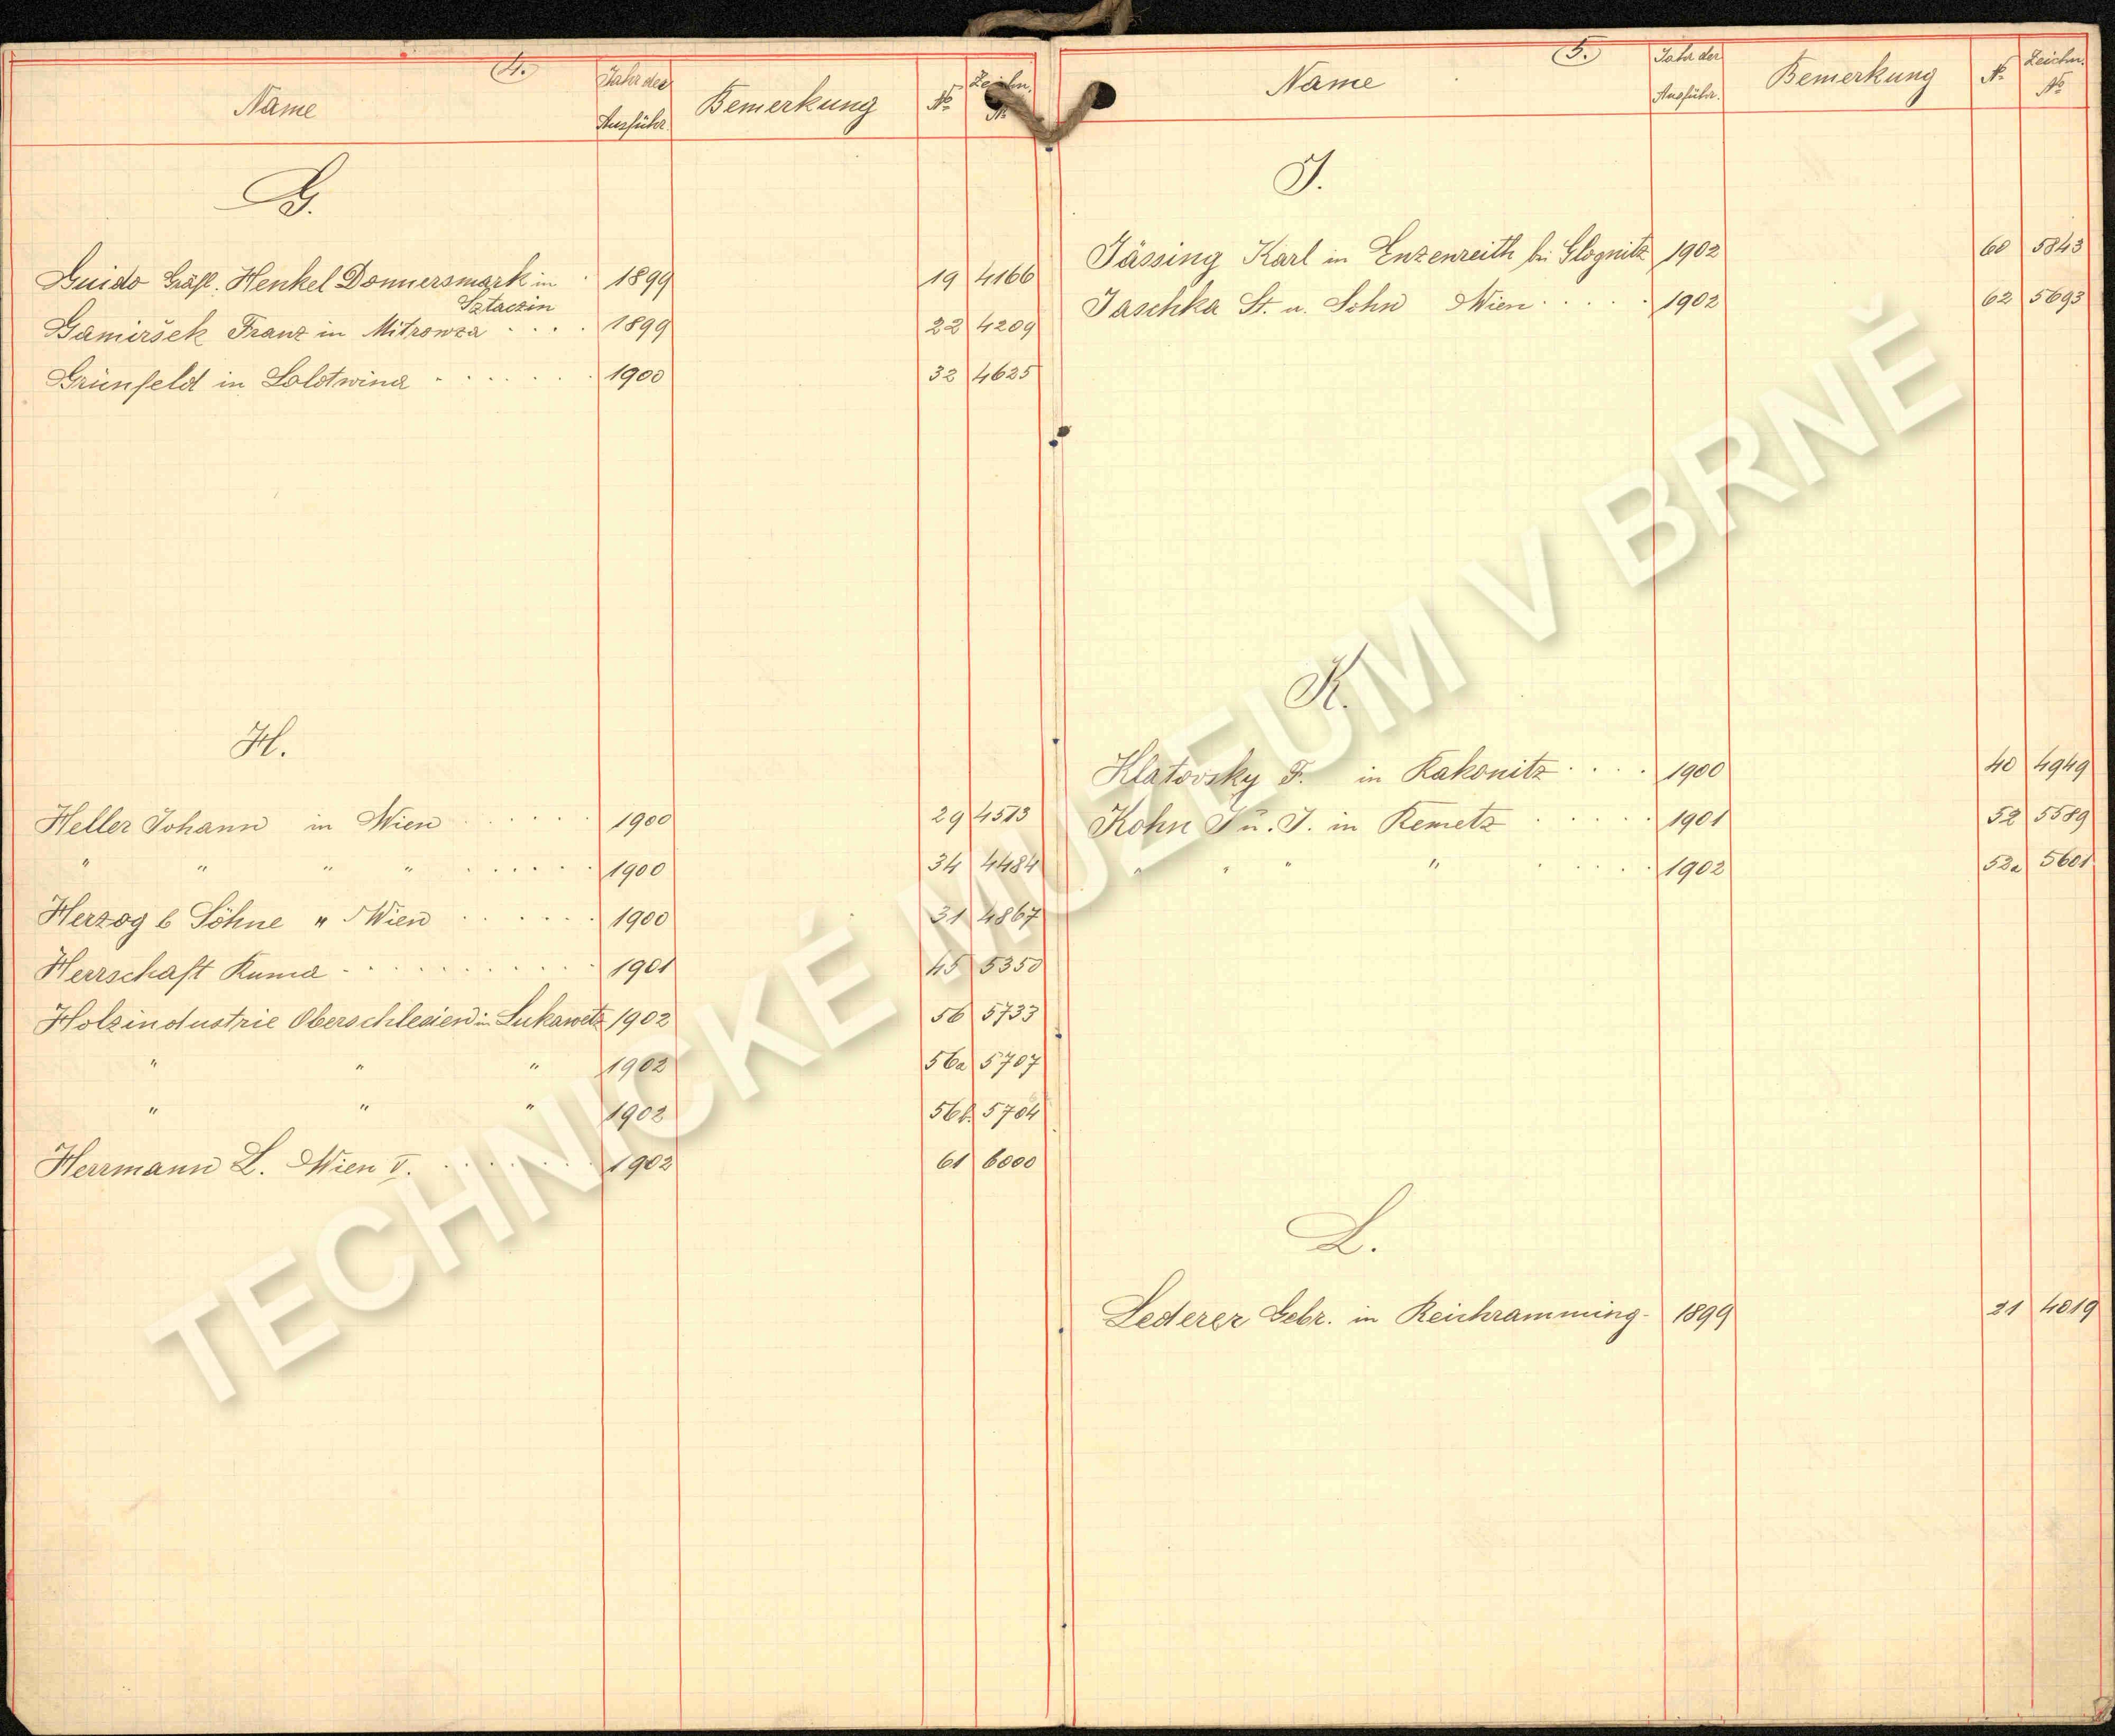 4.
Name Jahr der Ausführ. Bemerkung No Zeichn. No
G.
Guido Gräfl. Henkel Donnersmark in · 1899 19 4166
Sztaczin
Gamiršek Franz in Mitrowza · · · · 1899 22 4209
Grünfeld in Solotwina · · · · · · · 1900 32 4625
H.
Heller Johann in Wien · · · · · · 1900 29 4513
" " " " · · · · · · 1900 34 4484
Herzog & Söhne " Wien · · · · · · 1900 31 4867
Herrschaft Ruma · · · · · · · · · · 1901 45 5350
Holzindustrie Oberschlesien in Lukawetz 1902 56 5733
" " " 1902 56a 5707
" " " 1902 56b. 5704
Herrmann L. Wien V. · · · · · · · · 1902 61 6000
5.
Name Jahr der Ausführ. Bemerkung No Zeichn. No
J.
Jässing Karl in Enzenreith bei Glognitz 1902 60 5843
Jaschka St. u. Sohn Wien · · · · · 1902 62 5693
K.
Klatovsky F. in Rakonitz · · · · 1900 40 4949
Kohn J u. J. in Remetz · · · · · 1901 52 5589
" " " " · · · · 1902 52a 5601
L.
Lederer Gebr. in Reichramming - 1899 21 4019
TECHNICKÉ MUZEUM V BRNĚ